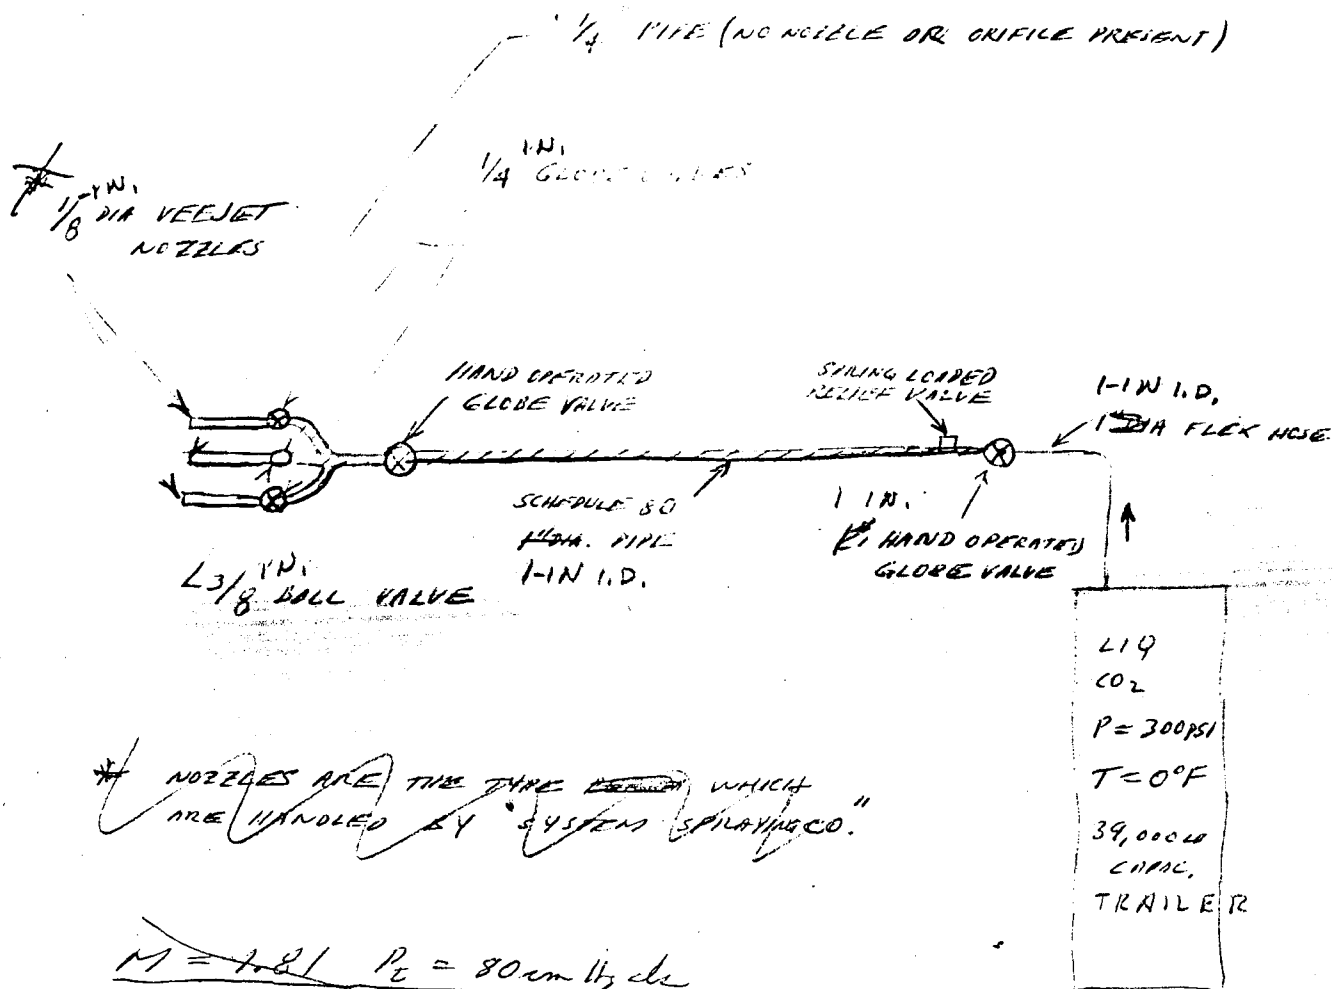 1/4 PIPE (NO NOZZLE OR ORIFILE PRESENT)
1/4 IN. GLOBE
* 1/8 -IN.
DIA VEEJET
NOZZLES
HAND OPERATED
GLOBE VALVE
SPRING LOADED
RELIEF VALVE
1-IN I.D.
DIA FLEX HOSE
SCHEDULE 80
1" DIA. PIPE
1-IN I.D.
1 IN.
HAND OPERATED
GLOBE VALVE
3/8 IN. BALL VALVE
LIQ
CO2
P = 300 PSI
T = 0°F
39,000 LB
CAPAC.
TRAILER
* NOZZLES ARE THE TYPE WHICH
ARE HANDLED BY "SYSTEM SPRAYING CO."
M = 1.81 P = 80 cm Hg